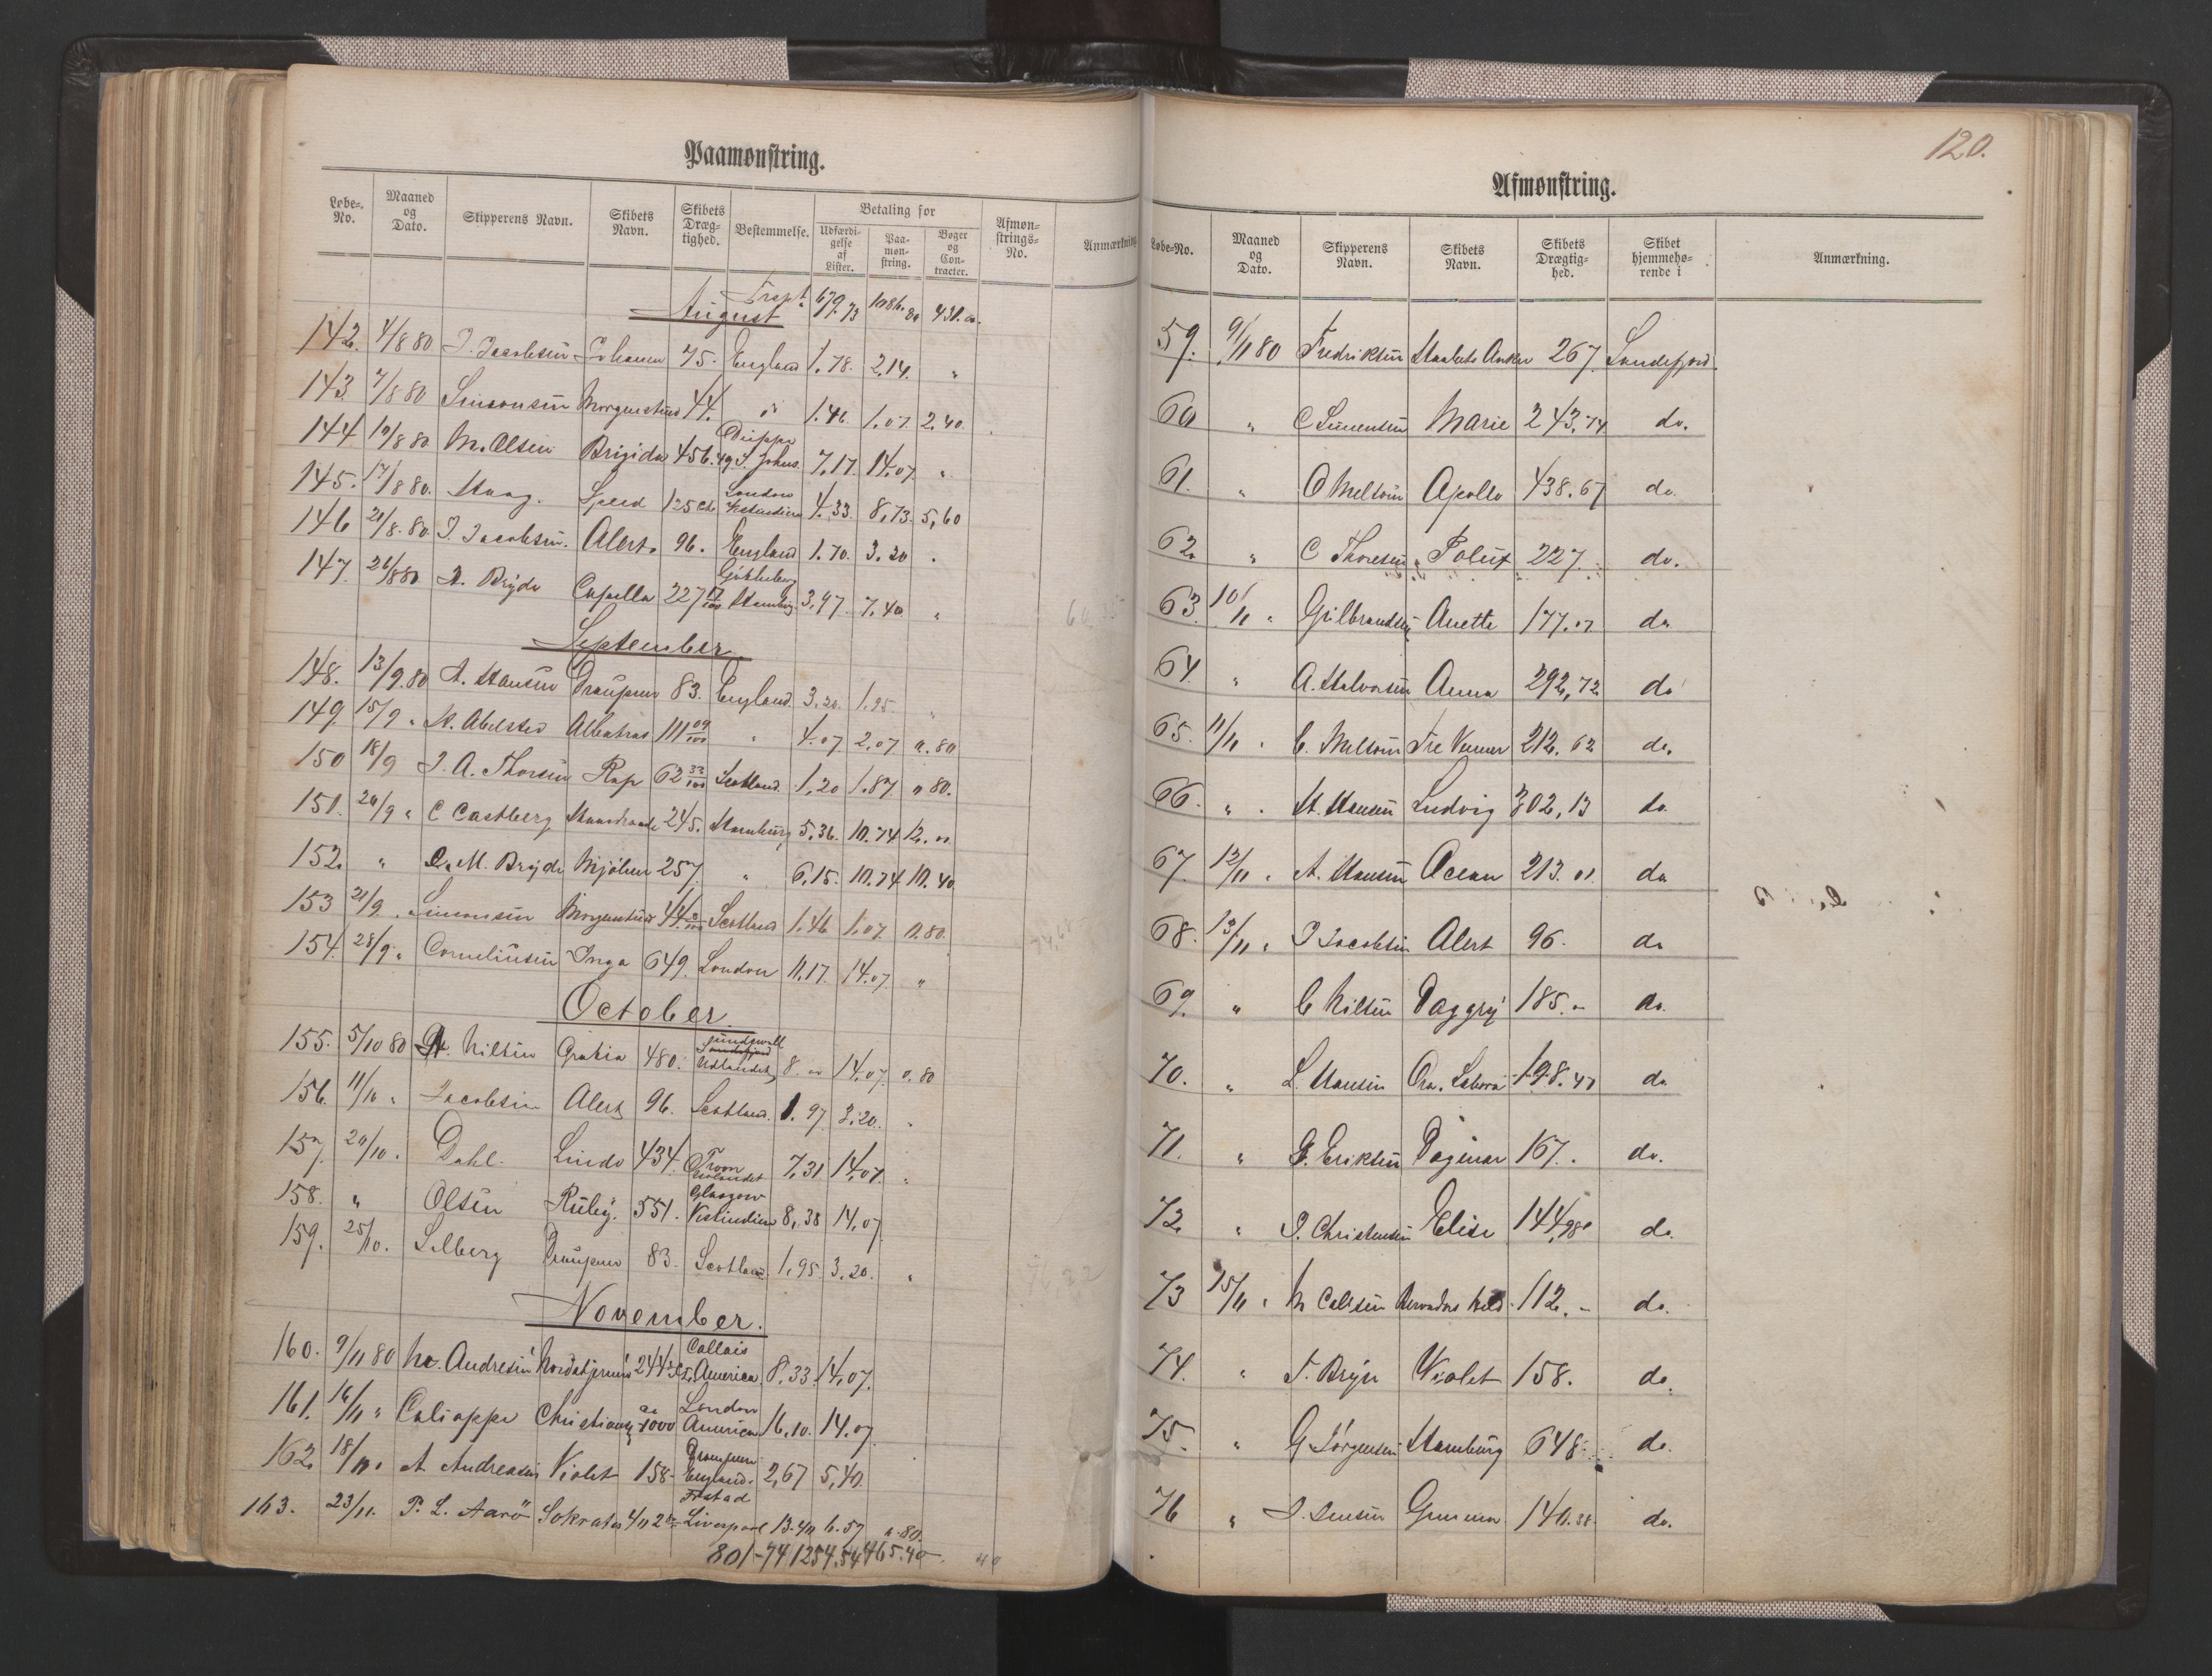 Paamønstring.
Løbe-No. Maaned og Dato. Skipperens Navn. Skibets Navn. Skibets Drægtighed. Bestemmelse. Betaling for Udfærdigelse af Lister. Paamønstring. Bøger og Contracter. Afmønstrings-No. Anmærkning
Trspt. 679.73
August
142. 4/8 80 J. Jacobsen 75. England 1,78. 2,14. "
143. 7/8 80 Simonsen Morgenstund 44. do 1.46. 1,07. 2,40.
144 10/8 80. M. Olsen Brigida 456.49 Dieppe St. Johns. 7,17. 14,07. "
145. 17/8 80. Haag. Speed 125 Cl. London Vestindien 4.33. 8,73. 5,60
146 20/8. 80. J. Jacobsen. Alert. 96. England 1.70. 3.20 .
147. 26/8 80 Bryde Capella 227 17/100 Gøtheborg Hamburg 3,97. 7,40. "
September
148. 13/9. 80 A. Hansen Draupner 83. England. 3,20. 1,95. "
149. 15/9 " Abelsted Albatras 111 09/100 " 4.07 2,07 0.80
150 18/9 J. A. Thorsen Rap 62 33/100 Scotland. 1,20 1.87 0 80.
151. 20/9 " C Castberg 245. Hamburg 5,36. 10.74 12.00
152. " M. Bryde Mjølner 257. " 6,15. 10.74 10.40
153 21/9. Simonsen Morgenstund 44. Scotland 1,46 1,07. 0.80.
154. 28/9. " Corneliusen Inga 649. London 11,17. 14.07. "
October.
155. 5/10 80 Nilsen Gratia 480. Sundsvall Udlandet 8. 00 14,07. 0.80
156. 11/10 " Jacobsen Alert 96. Scotland. 1. 97. 3,20. "
157. 20/10. Dahl. Lindo 434. Troon Udlandet 7,31 14,07. "
158. " Olsen Ruby. 551. Glasgow Vestindien 8,38 14,07.
159. 25/10. Selberg Draupner 83. Scotland. 1,95 3,20. "
November.
160. 9/11 80 Andresen Nordstjernen 244 Callais America. 8.33. 14,07.
161. 16/11 " Caliappe Christiane ca 1000 London America 16,10. 14.07.
162. 18/11 " A Andreasen Violet 158. England. 2,67 5,40.
163. 23/11. P. L. Aarø Sokrates 402 Frstad Liverpool 13.40 6.57 0.80
801-74 1254.54 465.40
120.
Afmønstring.
Løbe-No. Maaned og Dato. Skipperens Navn. Skibets Navn. Skibets Drægtighed. Skibet hjemmehørende i Anmærkning.
59. 9/11 80 Fredriksen Haabets Anker 267. Sandefjord.
60 " C Simensen Marie 243,74 do.
61. " O Melsom Apollo 438.67 do.
62. " C Thoresen Polux 227. do.
63. 10/11 " Gulbrandsen Anette 177.07 do
64. " A. Halvorsen Anna 292,72 do
65. 11/11 " C. Melsom Tre Venner 212.62 do.
66. " H. Hansen Ludvig 302,13 do
67. 12/11 " A. Hansen Ocean 213.01. do
68. 13/11 " J Jacobsen Alert 96. do
69. " C Nilsen Daggry 185.- do.
70. " L. Hansen Ora. Labora 198.47 do
71. " G. Eriksen Dagmar 167. do.
72. " P. Christensen Elise 144,98 do.
73 15/11 " N Collsen 112.- do.
74. " Violet 158. do.
75. " G Jørgensen Hamburg 648 do.
76 " J. Jensen 140.38. do.